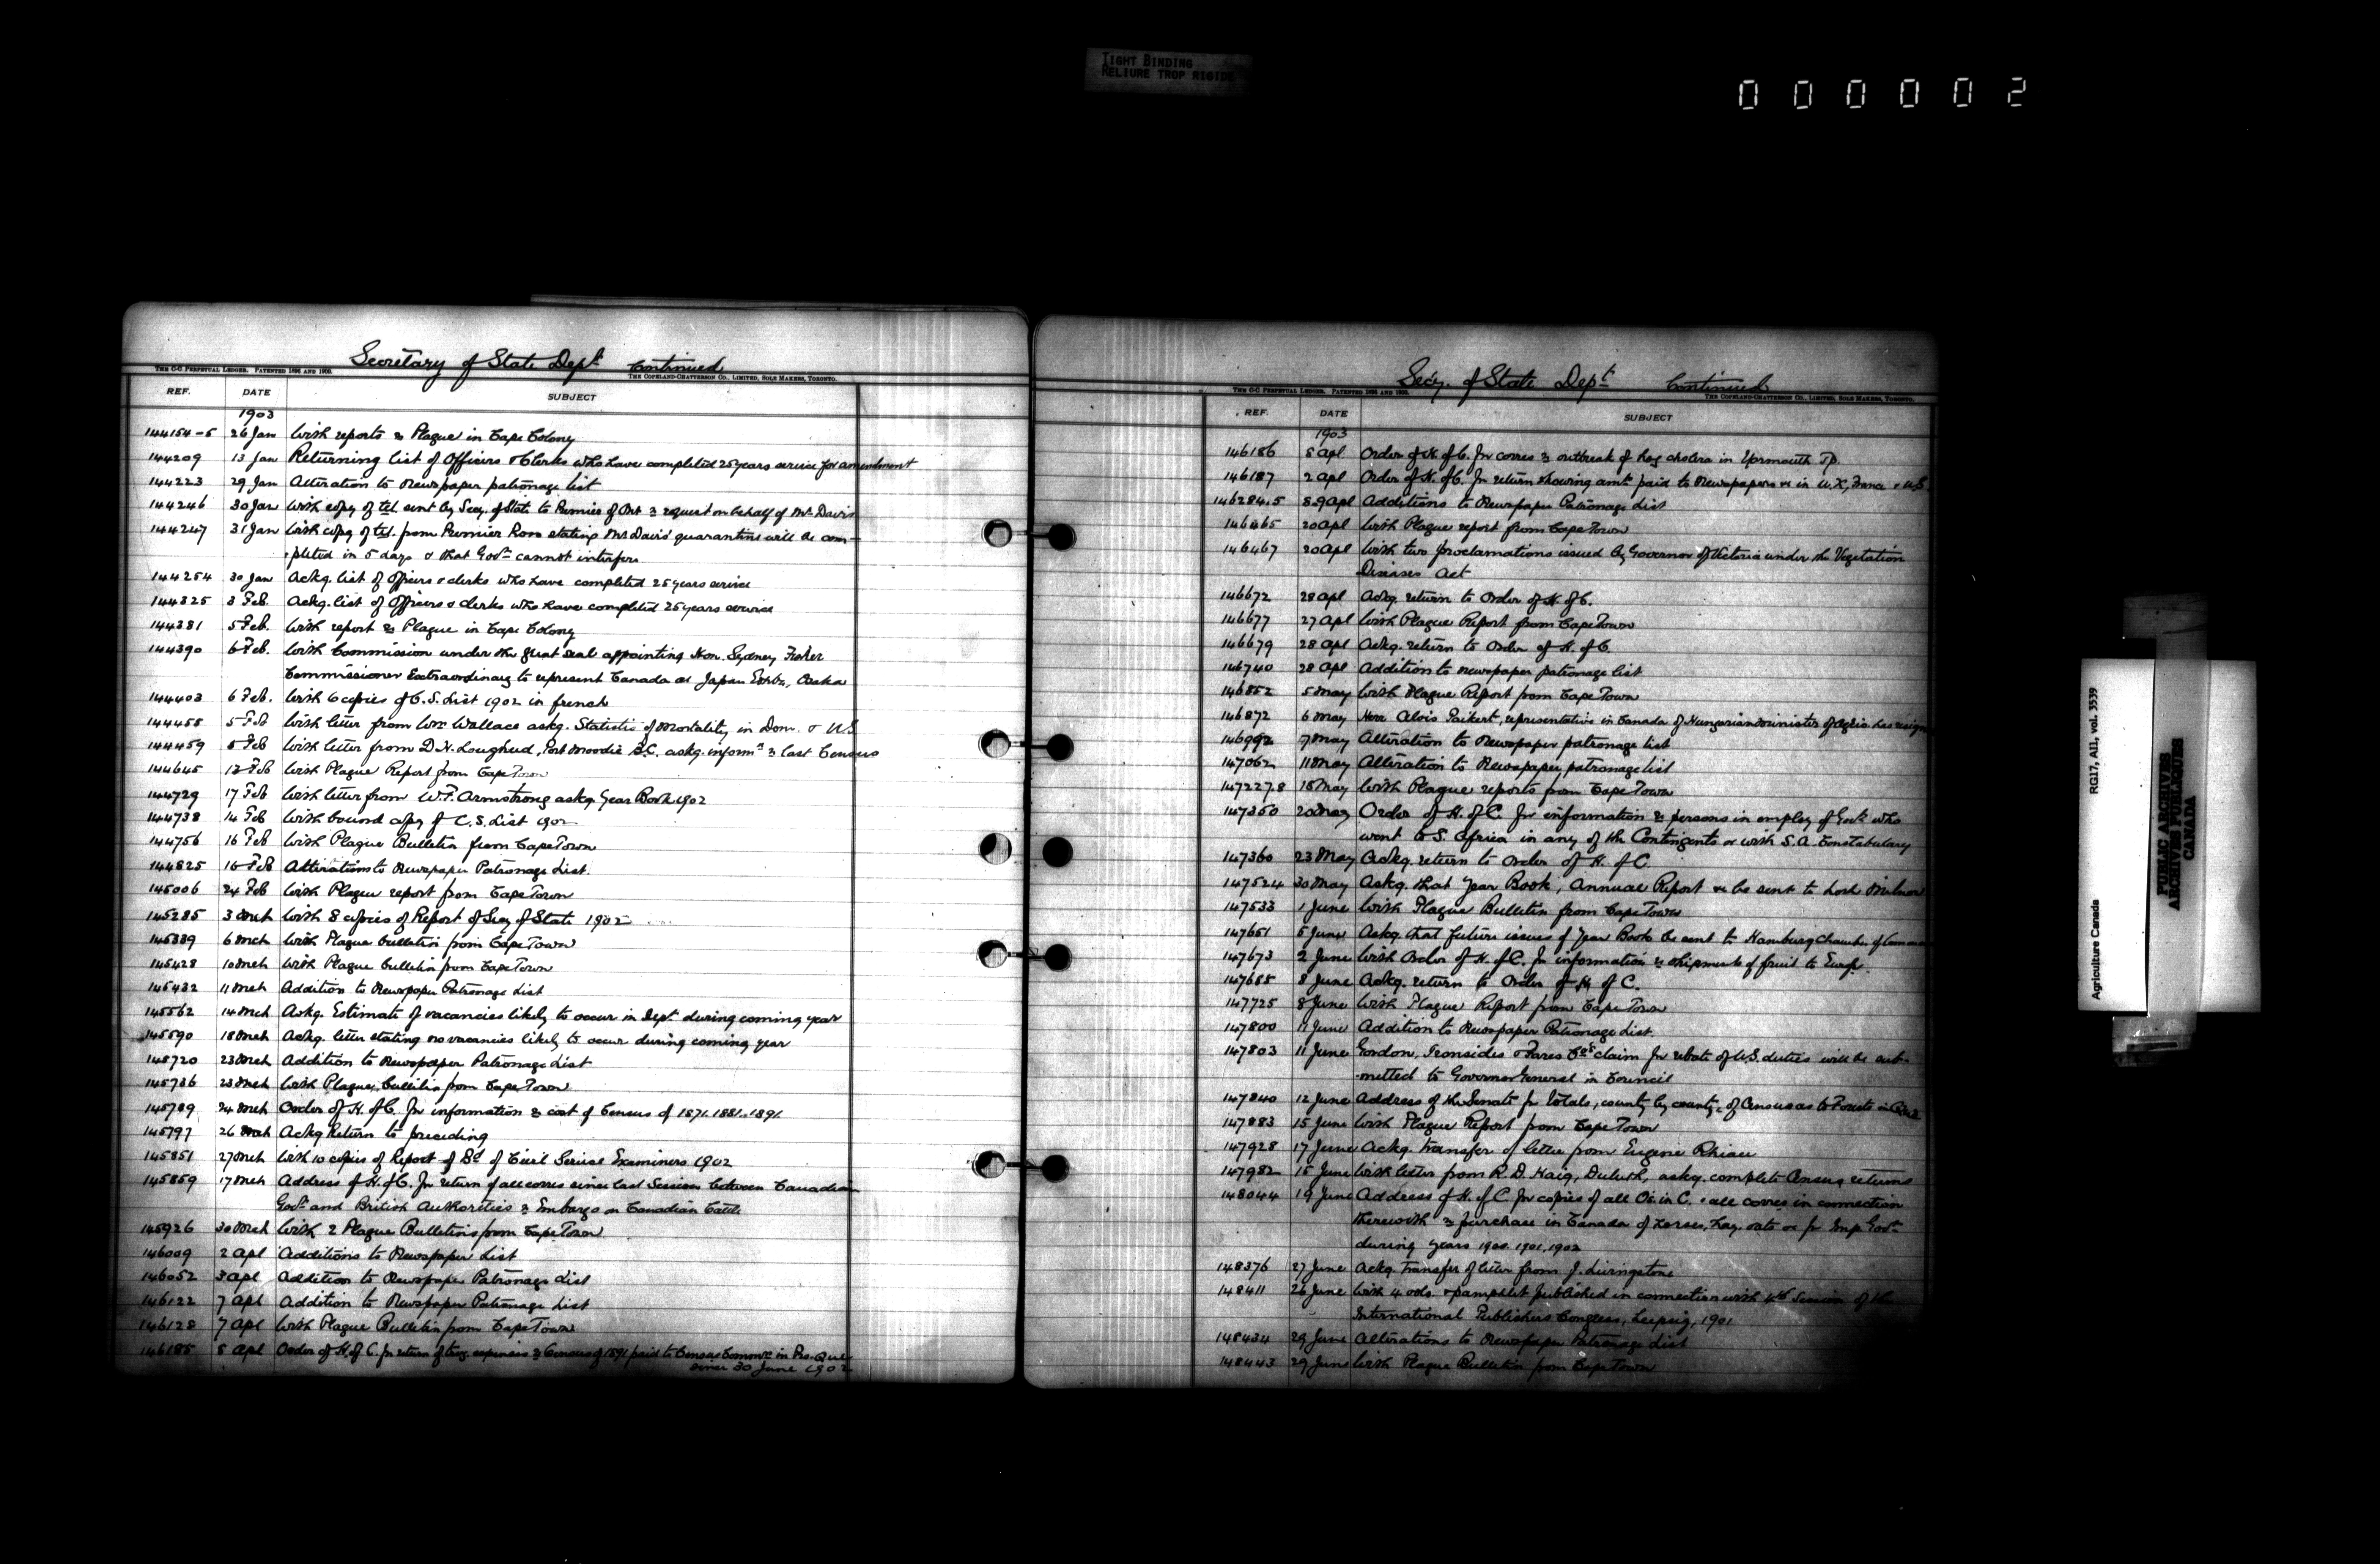 TIGHT BINDING
RELIURE TROP RIGIDE
000002
Secretary of State Dept. Continued
THE C-C PERPETUAL LEDGER. PATENTED 1896 AND 1900.
THE COPELAND-CHATTERSON CO., LIMITED, SOLE MAKERS, TORONTO.
REF. DATE SUBJECT
1903
144154-5 26 Jan With reports re Plague in Cape Colony
144209 13 Jan Returning list of Officers & Clerks who have completed 25 years service for amendment
144223 29 Jan Alteration to newspaper patronage list
144246 30 Jan With copy of tel sent by Secy. of State to Premier of Ont re request on behalf of Mr Davis
144247 31 Jan With copy of tel. from Premier Ross stating Mr Davis' quarantine will be com-
pleted in 5 days & that Govt cannot interfere
144254 30 Jan Ackg. list of Officers & clerks who have completed 25 years service
144325 3 Feb. Ackg. list of Officers & clerks who have completed 25 years service
144381 5 Feb. With report re Plague in Cape Colony
144390 6 Feb. With Commission under the great seal appointing Hon. Sydney Fisher
Commissioner Extraordinary to represent Canada at Japan Exhbn., Osaka
144403 6 Feb. With 6 copies of C.S. List 1902 in french
144458 5 Feb With letter from Wm Wallace askg. Statistics of Mortality in Dom. & U.S.
144459 5 Feb With letter from D.H. Lougheed, Port Moodie B.C. askg. informn re last Census
144645 12 Feb With Plague Report from Cape Town
144729 17 Feb With letter from W.F. Armstrong askg. Year Book 1902
144738 14 Feb With bound copy of C.S. List 1902
144756 16 Feb With Plague Bulletin from Cape Town
144825 16 Feb Alterations to Newspaper Patronage List.
145006 24 Feb With Plague report from Cape Town
145285 3 Mch With 8 copies of Report of Secy of State 1902
145339 6 Mch With Plague bulletin from Cape Town
145428 10 Mch With Plague bulletin from Cape Town
145432 11 Mch Addition to Newspaper Patronage List
145562 14 Mch Askg. Estimate of vacancies likely to occur in Dept during coming year
145590 18 Mch Ackg. letter stating no vacancies likely to occur during coming year
145720 23 Mch Addition to Newspaper Patronage List
145736 23 Mch With Plague bulletin from Cape Town
145789 24 Mch Order of H. of C. for information re cost of Census of 1871. 1881. 1891
145797 26 Mch Ackg Return to preceding
145851 27 Mch With 10 copies of Report of Bd of Civil Service Examiners 1902
145859 17 Mch Address of H. of C. for return of all corres since last Session between Canadian
Govt and British Authorities re Embargo on Canadian Cattle
145926 30 Mch With 2 Plague Bulletins from Cape Town
146009 2 Apl Additions to Newspaper List
146052 3 Apl Addition to Newspaper Patronage List
146122 7 Apl Addition to Newspaper Patronage List
146128 7 Apl With Plague Bulletin from Cape Town
146185 8 Apl Order of H. of C. for return of expenses re Census of 1891 paid to Census Commrs in Pro. Que
since 30 June 1902
Secy. of State Dept Continued
THE C-C PERPETUAL LEDGER. PATENTED 1896 AND 1900.
THE COPELAND-CHATTERSON CO., LIMITED, SOLE MAKERS, TORONTO.
REF. DATE SUBJECT
1903
146186 8 Apl Order of H. of C. for corres re outbreak of hog cholera in Yarmouth Tp.
146187 2 Apl Order of H. of C. for return showing amts paid to Newspapers &c in U.K., France & U.S
146284.5 8.9 Apl Additions to Newspaper Patronage List
146465 20 Apl With Plague report from Cape Town
146467 20 Apl With two proclamations issued by Governor of Victoria under the Vegetation
Diseases Act
146672 28 Apl Ackg. return to Order of H. of C.
146677 27 Apl With Plague Report from Cape Town
146679 28 Apl Ackg. return to Order of H. of C.
146740 28 Apl Addition to newspaper patronage list
146852 5 May With Plague Report from Cape Town
146872 6 May Herr Alois Paikert, representative in Canada of Hungarian Minister of Agric has resign
146992 7 May Alteration to Newspaper patronage list
147062 11 May Alteration to Newspaper patronage list
147227.8 18 May With Plague reports from Cape Town
147350 20 May Order of H. of C. for information re persons in employ of Govt who
went to S. Africa in any of the Contingents or with S.A. Constabulary
147360 23 May Ackg. return to Order of H. of C.
147524 30 May Askg. that Year Book, Annual Report &c be sent to Lord Milner
147533 1 June With Plague Bulletin from Cape Town
147651 5 June Askg. that future issues of Year Book be sent to Hamburg Chamber of Commerce
147673 2 June With Order of H. of C. for information re shipments of fruit to Europe.
147688 8 June Ackg. return to Order of H. of C.
147725 8 June With Plague Report from Cape Town
147800 11 June Addition to Newspaper Patronage List.
147803 11 June Gordon, Ironsides & Fares Co's claim for rebate of U.S. duties will be sub-
mitted to Governor General in Council
147840 12 June Address of the Senate for totals, county by county, of Census as to Forests in Que
147883 15 June With Plague Report from Cape Town
147928 17 June Ackg. transfer of letter from Eugene Rhiau
147982 15 June With letter from R.D. Haig, Duluth, askg. complete Census returns
148044 19 June Address of H. of C. for copies of all Os. in C. & all corres in connection
therewith re purchase in Canada of horses, hay, oats &c for Imp. Govt
during years 1900. 1901. 1902
148376 27 June Ackg. transfer of letter from J. Livingstone
148411 26 June With 4 vols. & pamphlet published in connection with 4th Session of the
International Publishers Congress, Leipzig, 1901
148434 29 June Alterations to Newspaper Patronage List
148443 29 June With Plague Bulletin from Cape Town
Agriculture Canada RG17, AII, vol. 3539
PUBLIC ARCHIVES
ARCHIVES PUBLIQUES
CANADA